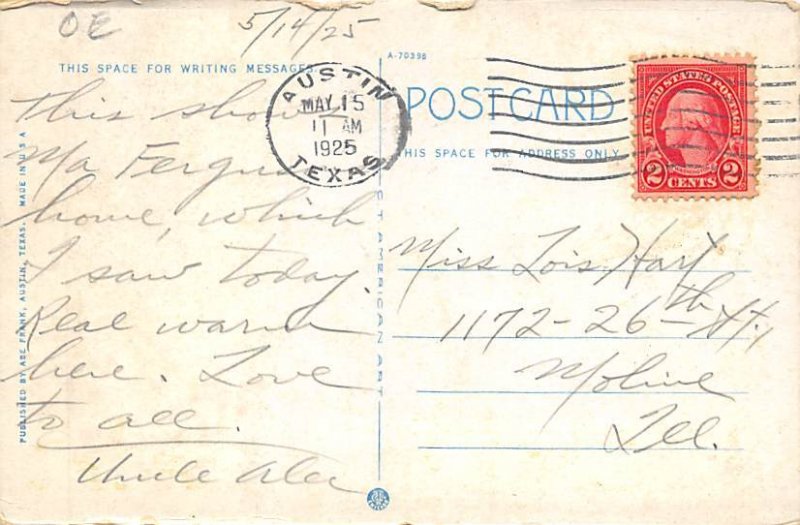 OE 5/14/25
THIS SPACE FOR WRITING MESSAGES
This shows
Ma Ferguson
home, which
I saw today.
Real warm
here. Love
to all.
Uncle Alec
PUBLISHED BY ABE FRANK, AUSTIN, TEXAS. MADE IN U S A
AUSTIN
MAY 15
11 AM
1925
TEXAS
A-70398
POSTCARD
THIS SPACE FOR ADDRESS ONLY
UNITED STATES POSTAGE
2 CENTS 2
AMERICAN ART
Miss Lois Hart
1172-26th St.,
Moline
Ill.